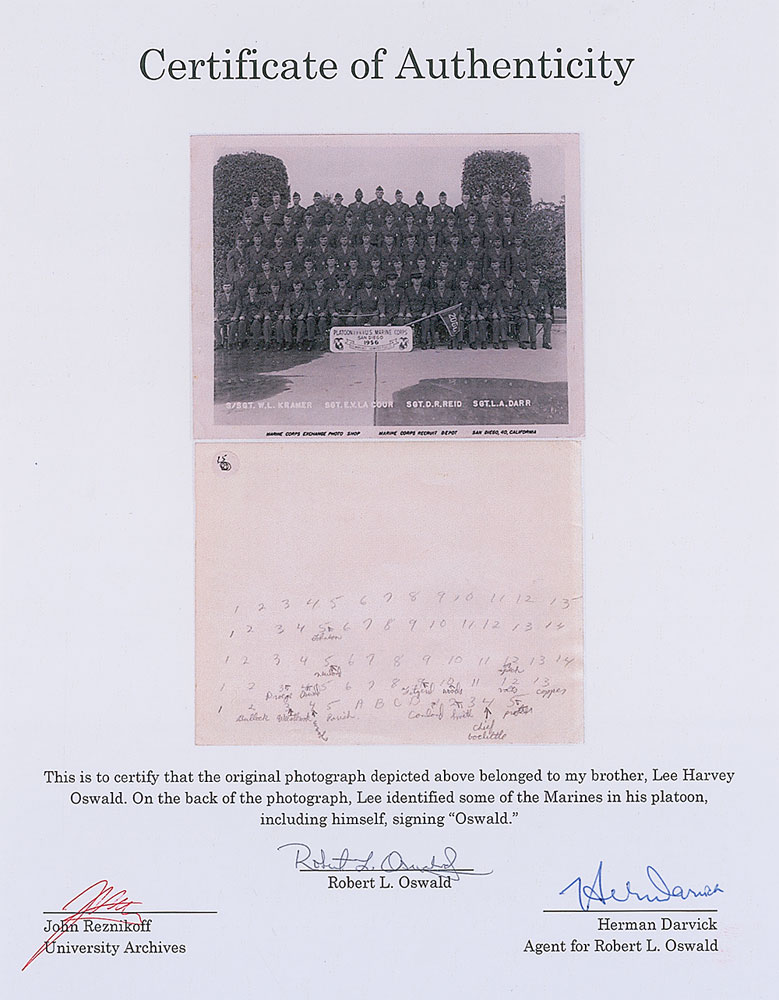 Certificate of Authenticity
PLATOON U.S. MARINE CORPS
SAN DIEGO
1956
S/SGT. W.L. KRAMER SGT. E.V. LA COUR SGT. D.R. REID SGT. L.A. DARR
MARINE CORPS EXCHANGE PHOTO SHOP MARINE CORPS RECRUIT DEPOT SAN DIEGO, 40, CALIFORNIA
1 2 3 4 5 6 7 8 9 10 11 12 13
1 2 3 4 5 6 7 8 9 10 11 12 13 14
1 2 3 4 5 6 7 8 9 10 11 12 13 14
1 2 3 4 5 6 7 8 9 10 11 12 13
woods copper
1 2 4 5 A B C D 1 2 3 4 5
Bullock Parish Smith
chief
This is to certify that the original photograph depicted above belonged to my brother, Lee Harvey
Oswald. On the back of the photograph, Lee identified some of the Marines in his platoon,
including himself, signing “Oswald.”
Robert L. Oswald
Robert L. Oswald
John Reznikoff
University Archives
Herman Darvick
Herman Darvick
Agent for Robert L. Oswald